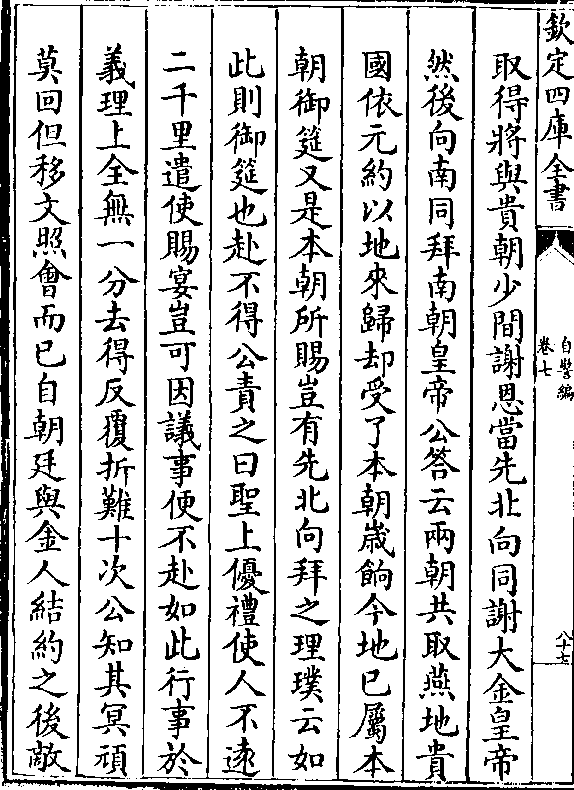 欽定四庫全書
自警編
卷七
八十七
取得將與貴朝少間謝恩當先北向同謝大金皇帝
然後向南同拜南朝皇帝公答云兩朝共取燕地貴
國依元約以地來歸却受了本朝歲餉今地已屬本
朝御筵又是本朝所賜豈有先北向拜之理璞云如
此則御筵也赴不得公責之曰聖上優禮使人不遠
二千里遣使賜宴豈可因議事便不赴如此行事於
義理上全無一分去得反覆折難十次公知其冥頑
莫回但移文照會而已自朝廷與金人結約之後敵